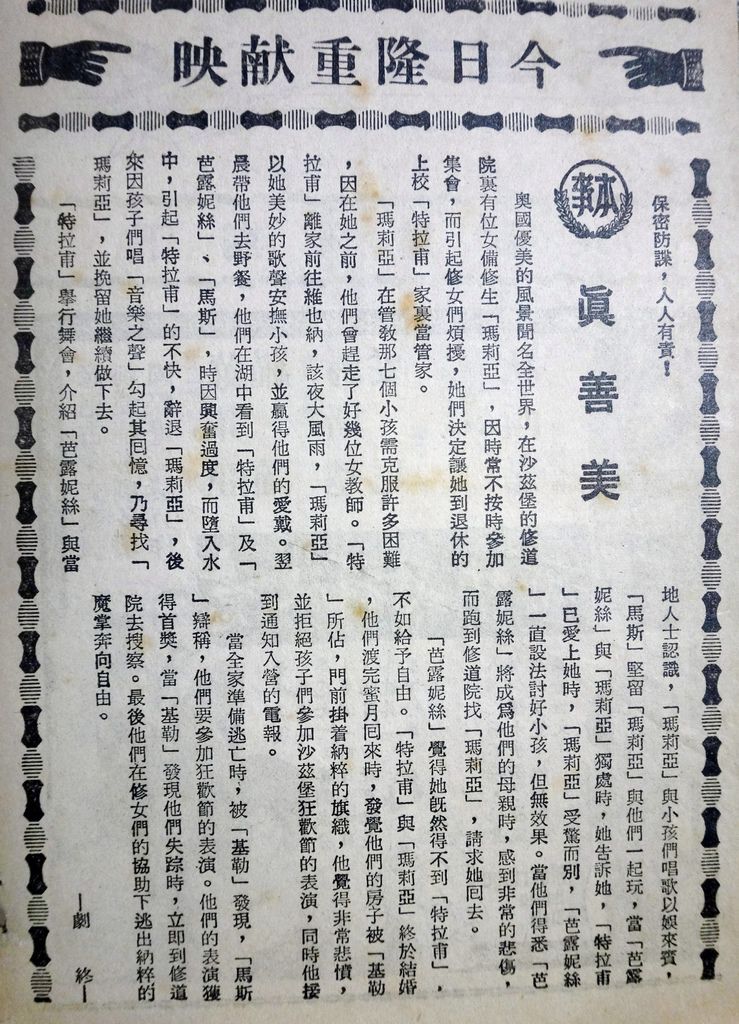 今日隆重献映
保密防諜，人人有責！
本事
眞善美
奧國優美的風景聞名全世界，在沙茲堡的修道
院裏有位女備修生「瑪莉亞」，因時常不按時參加
集會，而引起修女們煩擾，她們決定讓她到退休的
上校「特拉甫」家裏當管家。
「瑪莉亞」在管教那七個小孩需克服許多困難
，因在她之前，他們曾趕走了好幾位女教師。「特
拉甫」離家前往維也納，該夜大風雨，「瑪莉亞」
以她美妙的歌聲安撫小孩，並贏得他們的愛戴。翌
晨帶他們去野餐，他們在湖中看到「特拉甫」及「
芭露妮絲」、「馬斯」，時因興奮過度，而墮入水
中，引起「特拉甫」的不快，辭退「瑪莉亞」，後
來因孩子們唱「音樂之聲」勾起其回憶，乃尋找「
瑪莉亞」，並挽留她繼續做下去。
「特拉甫」舉行舞會，介紹「芭露妮絲」與當
地人士認識，「瑪莉亞」與小孩們唱歌以娛來賓，
「馬斯」堅留「瑪莉亞」與他們一起玩，當「芭露
妮絲」與「瑪莉亞」獨處時，她告訴她，「特拉甫
」已愛上她時，「瑪莉亞」受驚而別，「芭露妮絲
」一直設法討好小孩，但無效果。當他們得悉「芭
露妮絲」將成爲他們的母親時，感到非常的悲傷，
而跑到修道院找「瑪莉亞」，請求她回去。
「芭露妮絲」覺得她旣然得不到「特拉甫」，
不如給予自由。「特拉甫」與「瑪莉亞」終於結婚
，他們渡完蜜月回來時，發覺他們的房子被「基勒
」所佔，門前掛着納粹的旗織，他覺得非常悲憤，
並拒絕孩子們參加沙茲堡狂歡節的表演，同時他接
到通知入營的電報。
當全家準備逃亡時，被「基勒」發現，「馬斯
」辯稱，他們要參加狂歡節的表演。他們的表演獲
得首獎，當「基勒」發現他們失踪時，立即到修道
院去搜察。最後他們在修女們的協助下逃出納粹的
魔掌奔向自由。
—劇終—